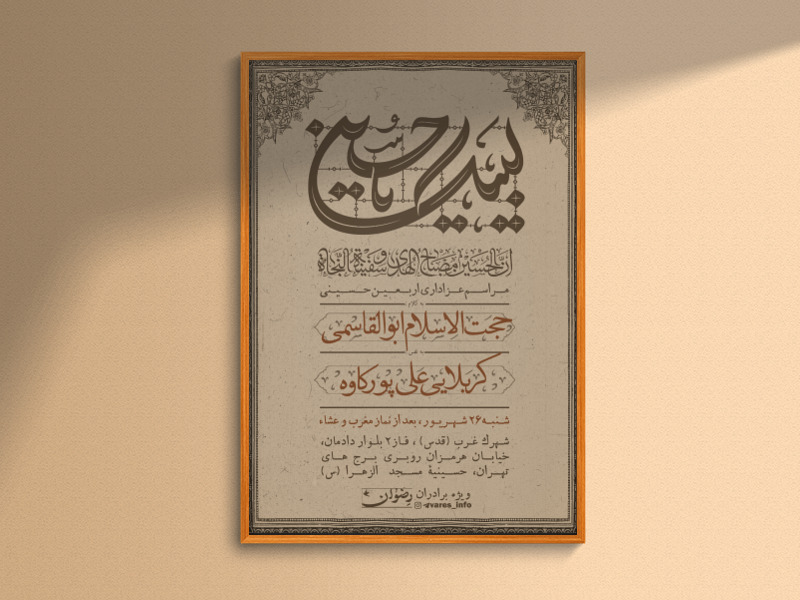 لبیک یا حسین
ان الحسین مصباح الهدی و سفینة النجاة
مراسم عزاداری اربعین حسینی
حجت الاسلام ابوالقاسمی
کربلایی علی پورکاوه
شنبه ۲۶ شهریور، بعد از نماز مغرب و عشاء
شهرك غرب (قدس) ، فاز ۲ بلوار دادمان،
خیابان هرمزان روبری برج های
تهران، حسینیهٔ مسجد الزهرا (س)
ویژه برادران رضوان